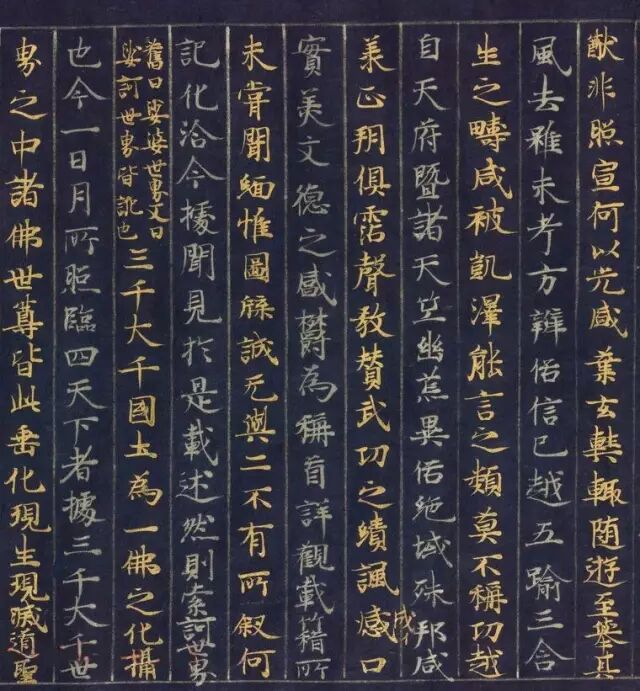 猷非照宣何以光盛業玄奘輙随遊至舉其
風去雖未考方辨俗信已越五踰三含
生之疇咸被凱澤能言之類莫不稱功越
自天府暨諸天竺幽荒異俗絶域殊邦咸
承正朔俱霑聲教賛武功之績諷感口
成
實美文德之盛欝為稱首詳觀載籍所
未甞聞緬惟圖牒誠无與二不有所叙何
記化洽今據聞見於是載述然則索訶世界
舊曰娑婆世界又曰
娑訶世界皆訛也
三千大千國土為一佛之化攝
也今一日月所照臨四天下者據三千大千世
界之中諸佛世尊皆此垂化現生現滅道聖